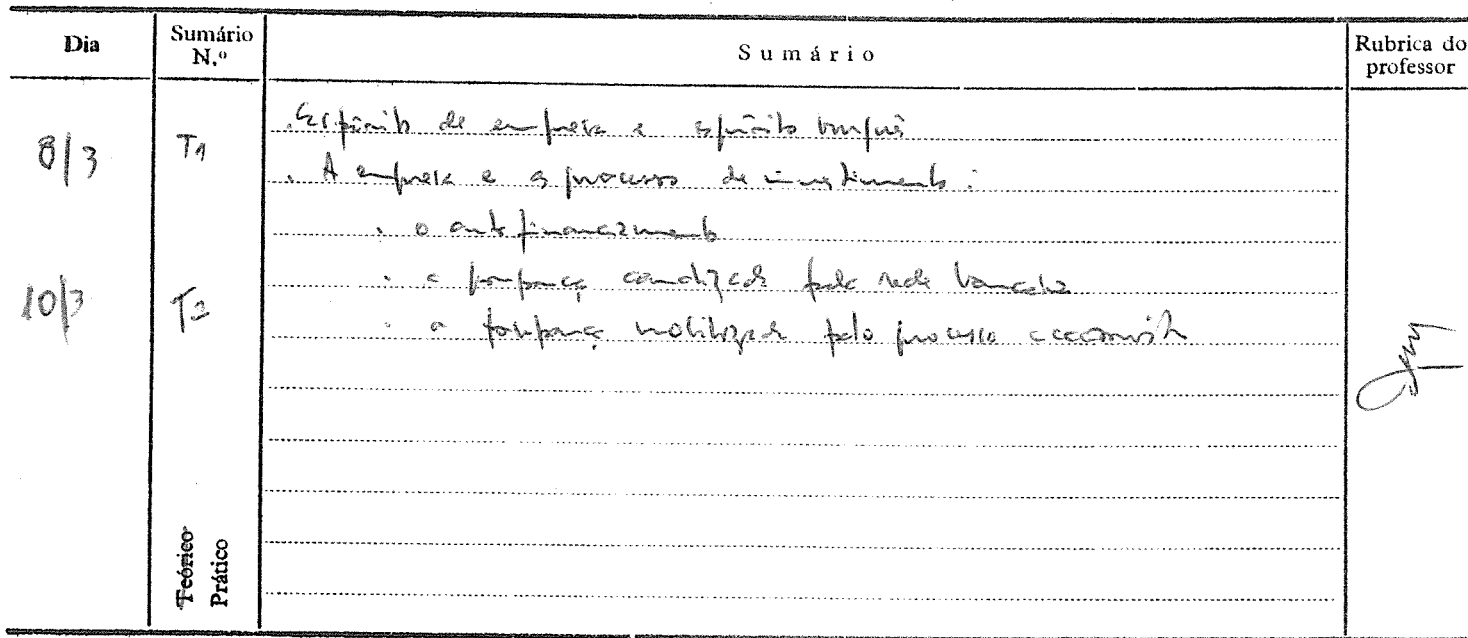 Dia Sumário N.º Sumário Rubrica do professor
8/3 T1 . Espírito de empresa e espírito burguês
. A empresa e o processo de investimento :
. o autofinanciamento
10/3 T2 . a poupança canalizada pela rede bancária
. a poupança mobilizada pelo processo accionista
Teórico
Prático